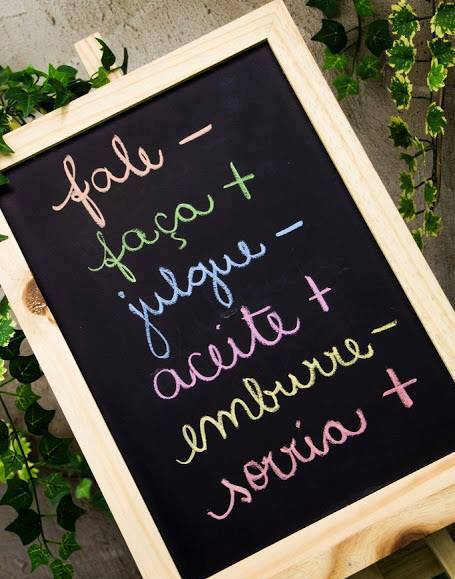 fale -
faça +
julgue -
aceite +
emburre -
sorria +